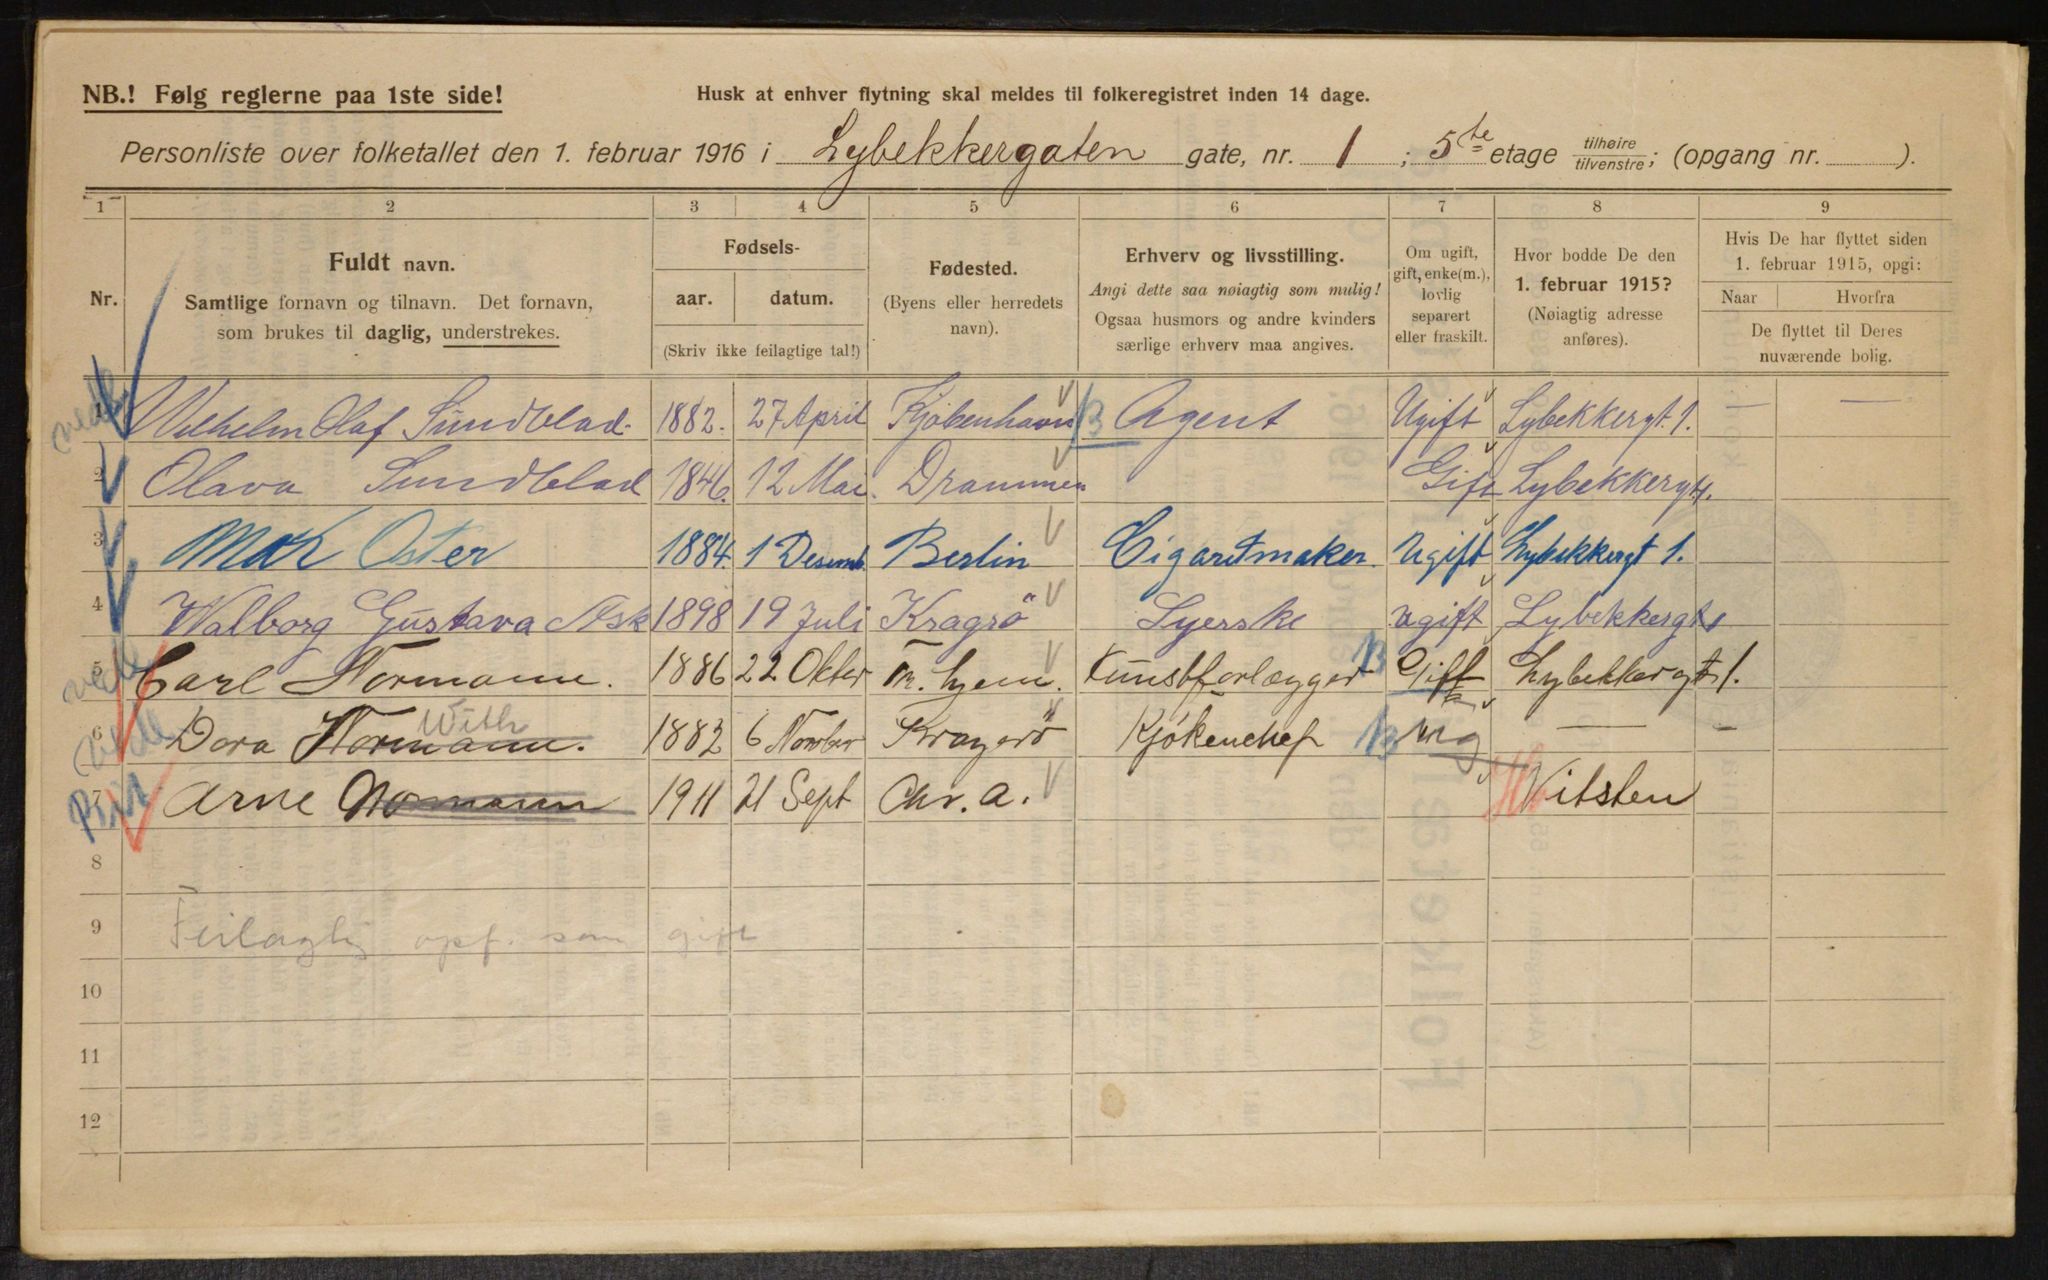 NB.! Følg reglerne paa 1ste side!
Husk at enhver flytning skal meldes til folkeregistret inden 14 dage.
Personliste over folketallet den 1. februar 1916 i Lybekkergaten gate, nr. 1 ; 5te etage tilhøire/tilvenstre; (opgang nr. ).
1 2 3 4 5 6 7 8 9
Nr.
Fuldt navn.
Samtlige fornavn og tilnavn. Det fornavn,
som brukes til daglig, understrekes.
Fødsels-
aar. datum.
(Skriv ikke feilagtige tal!)
Fødested.
(Byens eller herredets
navn).
Erhverv og livsstilling.
Angi dette saa nøiagtig som mulig!
Ogsaa husmors og andre kvinders
særlige erhverv maa angives.
Om ugift,
gift, enke(m.),
lovlig
separert
eller fraskilt.
Hvor bodde De den
1. februar 1915?
(Nøiagtig adresse
anføres).
Hvis De har flyttet siden
1. februar 1915, opgi:
Naar Hvorfra
De flyttet til Deres
nuværende bolig.
1 Wilhelm Olaf Sundblad. 1882. 27 April Kjøbenhavn B Agent Ugift Lybekkergt. 1. — —
2 Olava Sundblad 1846. 12 Mai. Drammen Gift Lybekkergt 1.
3 Max Oster 1884. 1 Desemb. Berlin Cigaretmaker. Ugift Lybekkergt 1.
4 Walborg Gustava Ask 1898 19 Juli Kragrö Syerske ugift Lybekkergt 1
5 Carl Normann. 1886 22 Okter Tr. hjem. Kunstforlægger B Gift Lybekkergt 1.
With
6 Dora Normann. 1882 6 Novber Kragerö Kjökenchef B ug — -
7 Arne Normann 1911 21 Sept Chr. a. Hvitsten
8
9 Feilagtig opf. som gift
10
11
12